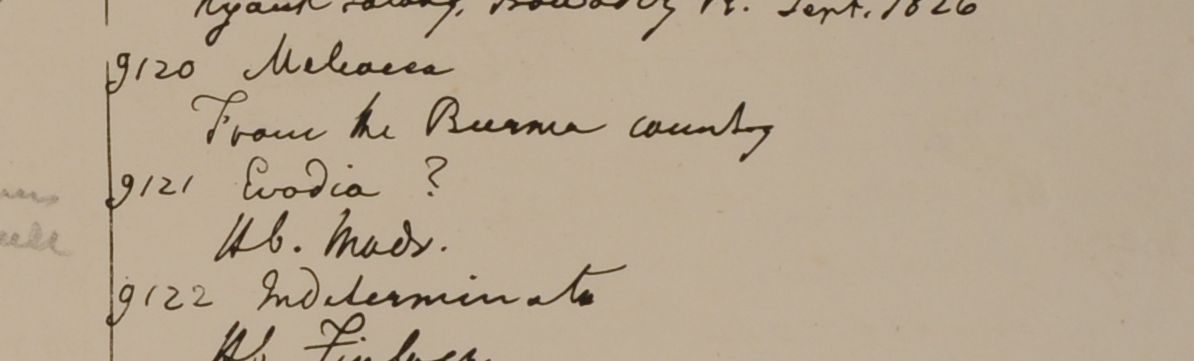 Sept. 1826
9120 Meliacea
From the Burma country
9121 Evodia ?
Hb. Madr.
9122 Indeterminata
Hb. Finlays.